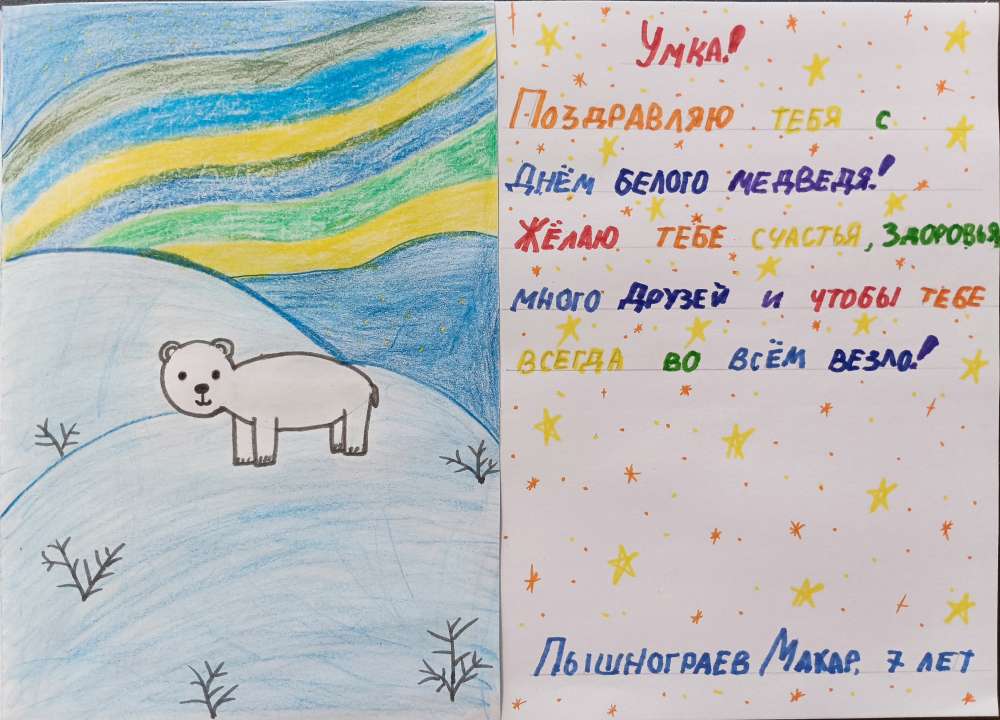 Умка!
Поздравляю тебя с
Днём белого медведя!
Жёлаю тебе счастья, здоровья
много друзей и чтобы тебе
всегда во всём везло!
Пышнограев Макар, 7 лет